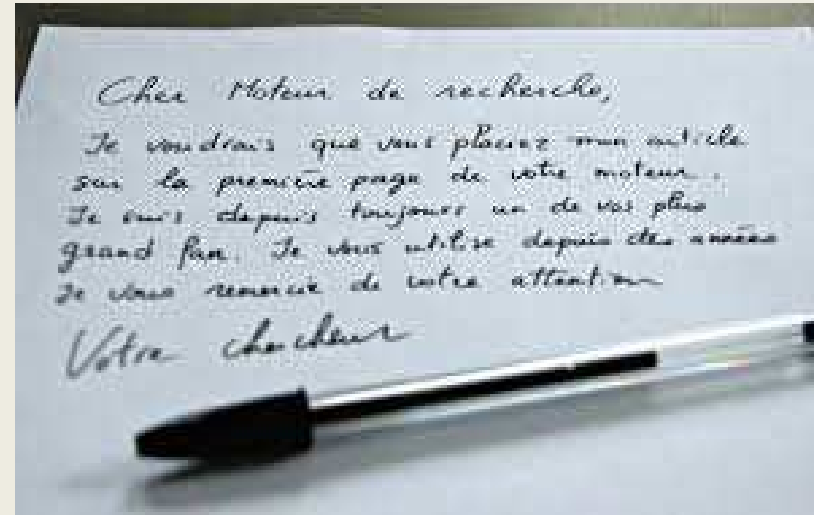 Cher Moteur de recherche,
Je voudrais que vous placiez mon article
sur la première page de votre moteur.
Je suis depuis toujours un de vos plus
grand fan. Je vous utilise depuis des années
Je vous remercie de votre attention
Votre chercheur